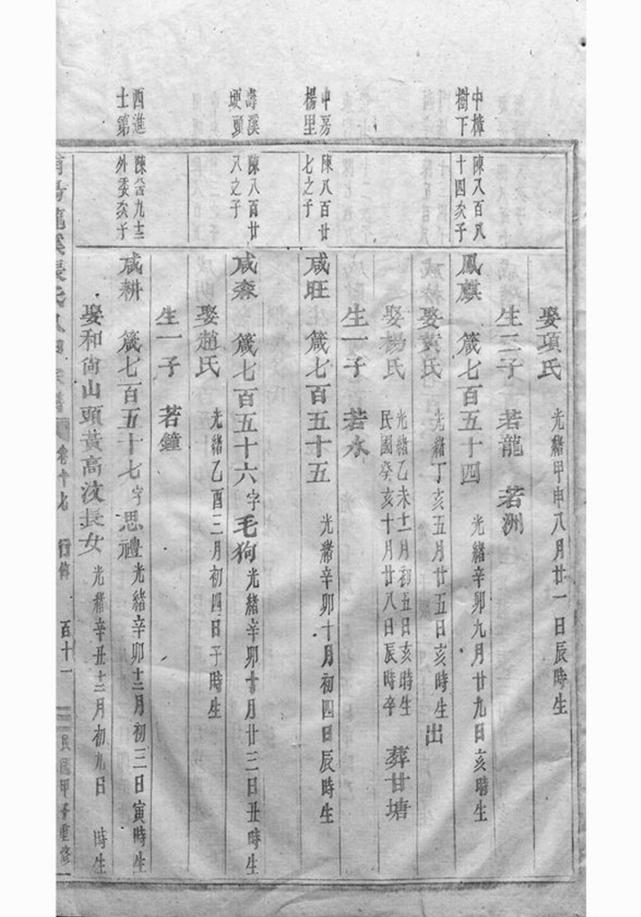 娶項氏 光緒甲申八月廿一日辰時生
生二子 若龍 若洲
中樟樹下
陳八百八十四次子
鳳麒 箴七百五十四 光緒辛卯九月廿九日亥時生
娶黃氏 光緒丁亥五月廿五日亥時生 出
娶楊氏 光緒乙未十二月初五日亥時生 民國癸亥十月廿八日辰時卒 葬甘塘
生一子 若水
中房楊里
陳八百廿七之子
咸旺 箴七百五十五 光緒辛卯十月初四日辰時生
溪埂頭
陳八百廿八之子
咸森 箴七百五十六字毛狗 光緒辛卯十月廿三日丑時生
娶趙氏 光緒乙酉三月初四日子時生
生一子 若鐘
西進士第
陳 九十 外委次子
咸耕 箴七百五十七字思禮 光緒辛卯十二月初三日寅時生
娶和尙山頭黃高汶長女 光緒辛丑十二月初九日 時生
龍溪張氏 宗譜 卷十九 行傳 百十一 民國甲子重修